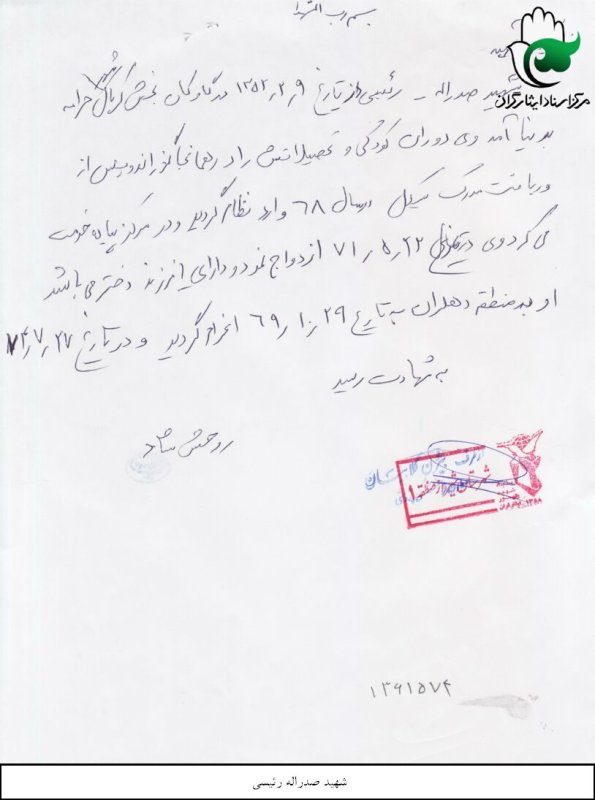 بسم رب الشهدا
مرکز اسناد ایثارگران
شهید صدراله - رئیسی در تاریخ ۱۳۵۲,۲,۹ در گاوکان بخش کربال خرامه
بدنیا آمد وی دوران کودکی و تحصیلاتش را در همانجا گذراند و پس از
دریافت مدرک سیکل در سال ۶۸ وارد نظام گردید و در مرکز پیاده خدمت
می کرد وی در تاریخ ۷۱,۵,۲۲ ازدواج نمود و دارای ۱ فرزند دختر می باشد
او به منطقه دهلران به تاریخ ۶۹,۱۰,۲۹ اعزام گردید و در تاریخ ۷۴,۷,۲۷
به شهادت رسید
روحش شاد
شهرستان شیراز منطقه ۱
۱۳۶۱۵۷۴
شهید صدراله رئیسی